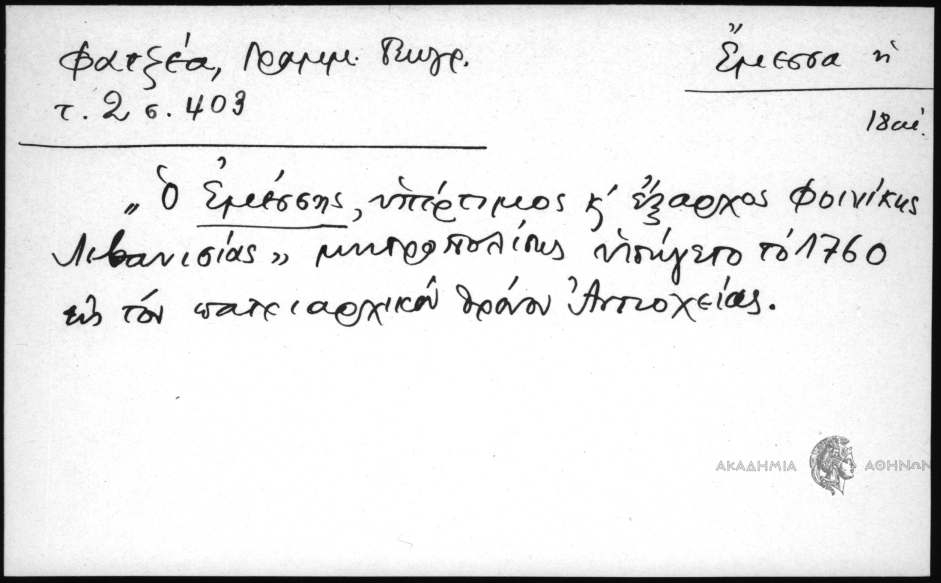 Φατζέα, Γραμμ. Γεωγρ.
τ. 2 σ. 403
Ἔμεσσα ἡ
18 αἰ.
„ Ὁ Ἐμέσσης, ὑπέρτιμος κ' ἔξαρχος Φοινίκης
Λιβανισίας „ μητροπολίτης ὑπήγετο τὸ 1760
εἰς τὸν πατριαρχικὸν θρόνον Ἀντιοχείας.
ΑΚΑΔΗΜΙΑ ΑΘΗΝΩΝ